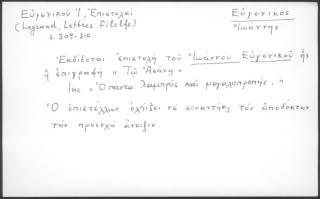 Εὐγενικοῦ Ἰ, Ἐπιστολαὶ
(Legrand, Lettres Filelfe)
σ. 309-310
Εὐγενικὸς
Ἰωάννης
Ἐκδίδεται ἐπιστολὴ τοῦ Ἰωάννου Εὐγενικοῦ ἧς
ἡ ἐπιγραφὴ « Τῷ Ἀσάνῃ »
Inc « Ὁ πάντα λαμπρὸς καὶ μεγαλοπρεπής. »
Ὁ ἐπιστέλλων ἐλπίζει νὰ συναντήσῃ τὸν ἀποδέκτην
τὴν προσεχῆ ἄνοιξιν.